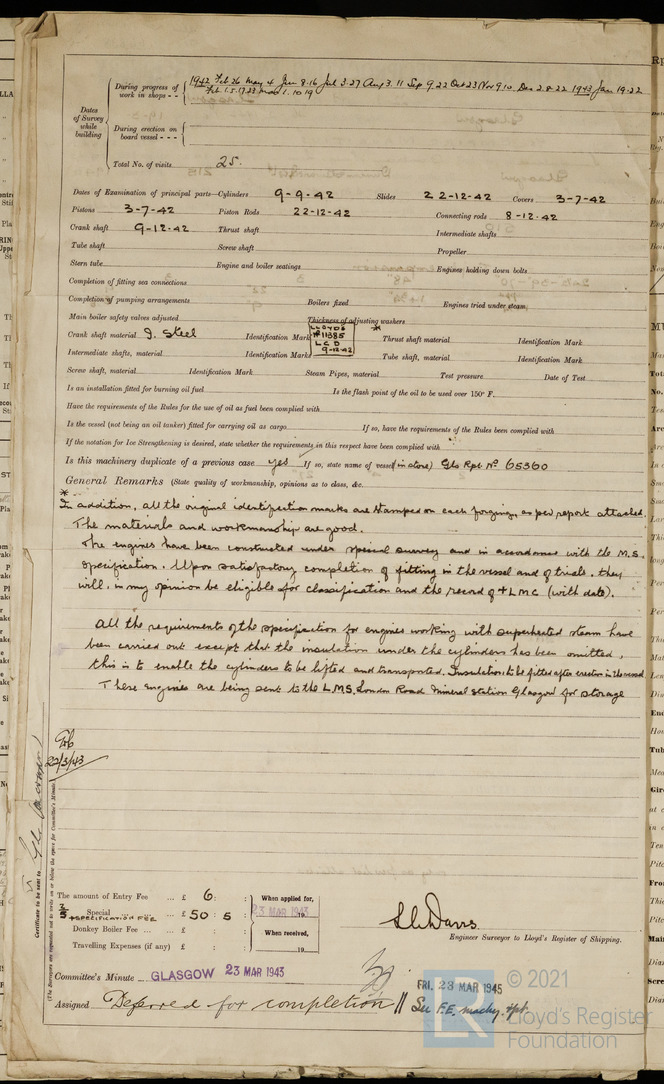 Dates of Survey while building
During progress of work in shops - - 1942 Feb 26 May 4 Jun 8.16 Jul 3.27 Aug 3.11 Sep 9.22 Oct 23 Nov 9.10. Dec 2.8.22 1943 Jan 19.22
Feb 1.5.17.23 Mar 1.10.19
During erection on board vessel - - -
Total No. of visits 25.
Dates of Examination of principal parts—Cylinders 9-9-42 Slides 22-12-42 Covers 3-7-42
Pistons 3-7-42 Piston Rods 22-12-42 Connecting rods 8-12-42
Crank shaft 9-12-42 Thrust shaft Intermediate shafts
Tube shaft Screw shaft Propeller
Stern tube Engine and boiler seatings Engines holding down bolts
Completion of fitting sea connections
Completion of pumping arrangements Boilers fixed Engines tried under steam
Main boiler safety valves adjusted Thickness of adjusting washers
Crank shaft material I. Steel Identification Mark LLOYDS Nº 11385 LCD 9-12-42 * Thrust shaft material Identification Mark
Intermediate shafts, material Identification Marks Tube shaft, material Identification Mark
Screw shaft, material Identification Mark Steam Pipes, material Test pressure Date of Test
Is an installation fitted for burning oil fuel Is the flash point of the oil to be used over 150° F.
Have the requirements of the Rules for the use of oil as fuel been complied with
Is the vessel (not being an oil tanker) fitted for carrying oil as cargo If so, have the requirements of the Rules been complied with
If the notation for Ice Strengthening is desired, state whether the requirements in this respect have been complied with
Is this machinery duplicate of a previous case yes If so, state name of vessel (in store) Gls Rpt Nº 65360
General Remarks (State quality of workmanship, opinions as to class, &c.
* In addition, all the original identification marks are stamped on each forging, as per report attached.
The materials and workmanship are good.
The engines have been constructed under special survey and in accordance with the M.S.
specification. Upon satisfactory completion of fitting in the vessel and of trials, they
will, in my opinion be eligible for classification and the record of + LMC (with date).
All the requirements of the specification for engines working with superheated steam have
been carried out except that the insulation under the cylinders has been omitted,
this is to enable the cylinders to be lifted and transported. Insulation to be fitted after erection in the vessel
These engines are being sent to the L.M.S. London Road Mineral Station Glasgow for storage
22/3/43
Certificate to be sent to
(The Surveyors are requested not to write on or below the space for Committee's Minute)
The amount of Entry Fee ... £ 6 : :
Special ... £ 50 : 5 :
+ SPECIFICATION FEE
Donkey Boiler Fee ... £ : :
Travelling Expenses (if any) £ : :
When applied for,
23 MAR 1943
When received,
19
Engineer Surveyor to Lloyd's Register of Shipping.
Committee's Minute GLASGOW 23 MAR 1943
FRI. 23 MAR 1945
Assigned Deferred for completion
See F.E. machy. rpt.
© 2021
Lloyd's Register
Foundation